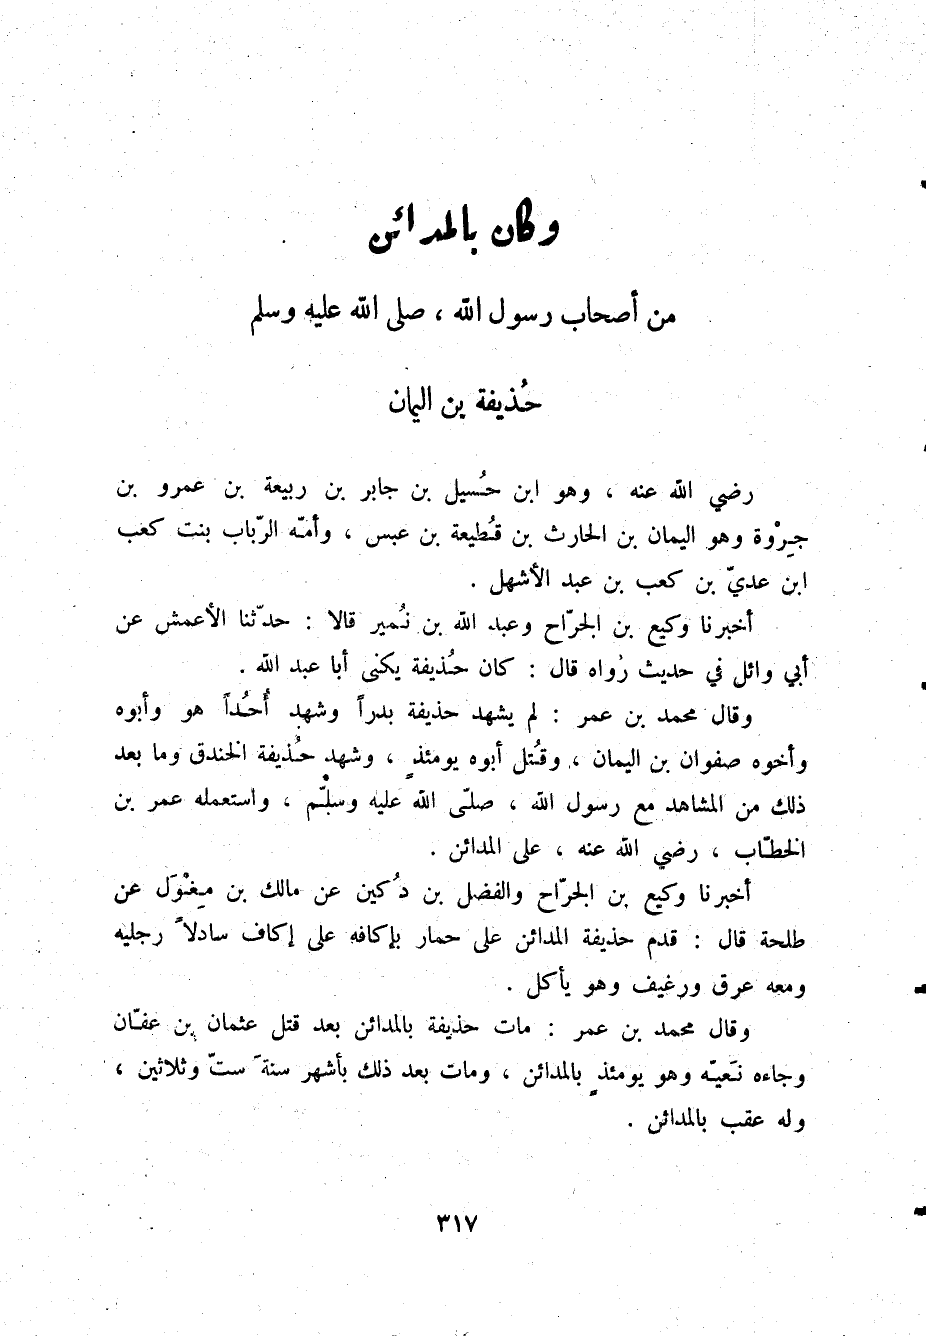 وكان بالمدائن
من أصحاب رسول الله ، صلى الله عليه وسلم
حُذيفة بن اليمان
رضي الله عنه ، وهو ابن حُسيل بن جابر بن ربيعة بن عمرو بن
جِرْوة وهو اليمان بن الحارث بن قُطيعة بن عبس ، وأمّه الرّباب بنت كعب
ابن عديّ بن كعب بن عبد الأشهل .
أخبرنا وكيع بن الجرّاح وعبد الله بن نُمير قالا : حدّثنا الأعمش عن
أبي وائل في حديث رواه قال : كان حُذيفة يكنى أبا عبد الله .
وقال محمد بن عمر : لم يشهد حذيفة بدراً وشهد أُحُداً هو وأبوه
وأخوه صفوان بن اليمان ، وقُتل أبوه يومئذٍ ، وشهد حُذيفة الخندق وما بعد
ذلك من المشاهد مع رسول الله ، صلّى الله عليه وسلّم ، واستعمله عمر بن
الخطّاب ، رضي الله عنه ، على المدائن .
أخبرنا وكيع بن الجرّاح والفضل بن دُكين عن مالك بن مِغْوَل عن
طلحة قال : قدم حذيفة المدائن على حمار بإكافه على إكاف سادلاً رجليه
ومعه عرق ورغيف وهو يأكل .
وقال محمد بن عمر : مات حذيفة بالمدائن بعد قتل عثمان بن عفّان
وجاءه نَعيّه وهو يومئذٍ بالمدائن ، ومات بعد ذلك بأشهر سنةَ ستّ وثلاثين ،
وله عقب بالمدائن .
٣١٧